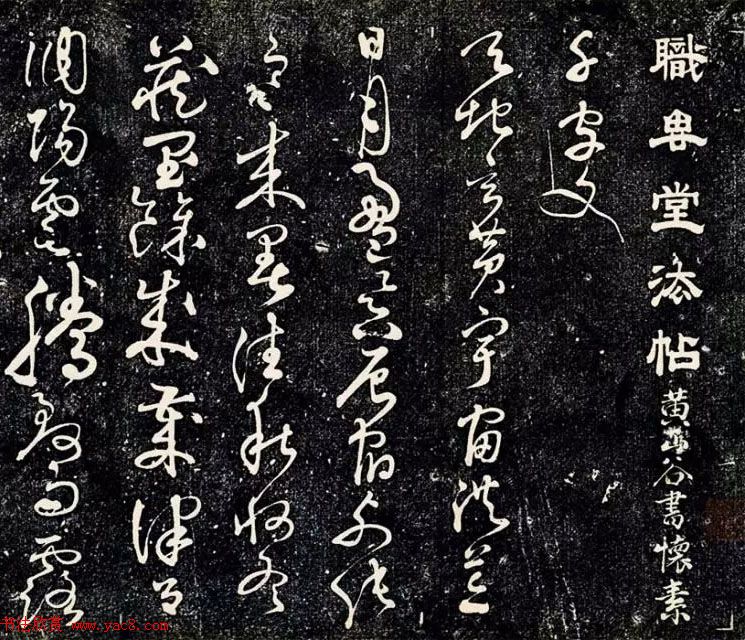 職思堂法帖 黃山谷書懷素
千字文
天地玄黃宇宙洪荒
日月盈昃辰宿列張
寒來暑往秋收冬
藏閏餘成歲律呂
調陽雲騰致雨露
书法欣赏 www.yac8.com